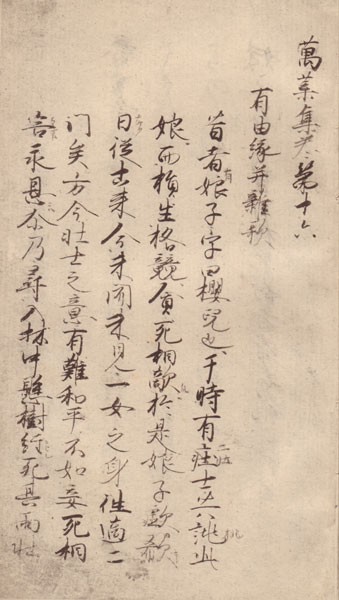 萬葉集巻第十六
有由縁并雜歌
昔者娘子字曰櫻兒也于時有二壮士共誂此
娘而捐生格競貪死相敵於是娘子歔欷
曰從古来今未聞未見一女之身徃適二
门矣方今壮士之意有難和平不如妾死相
害永息尒乃尋入林中懸樹経死其兩壮